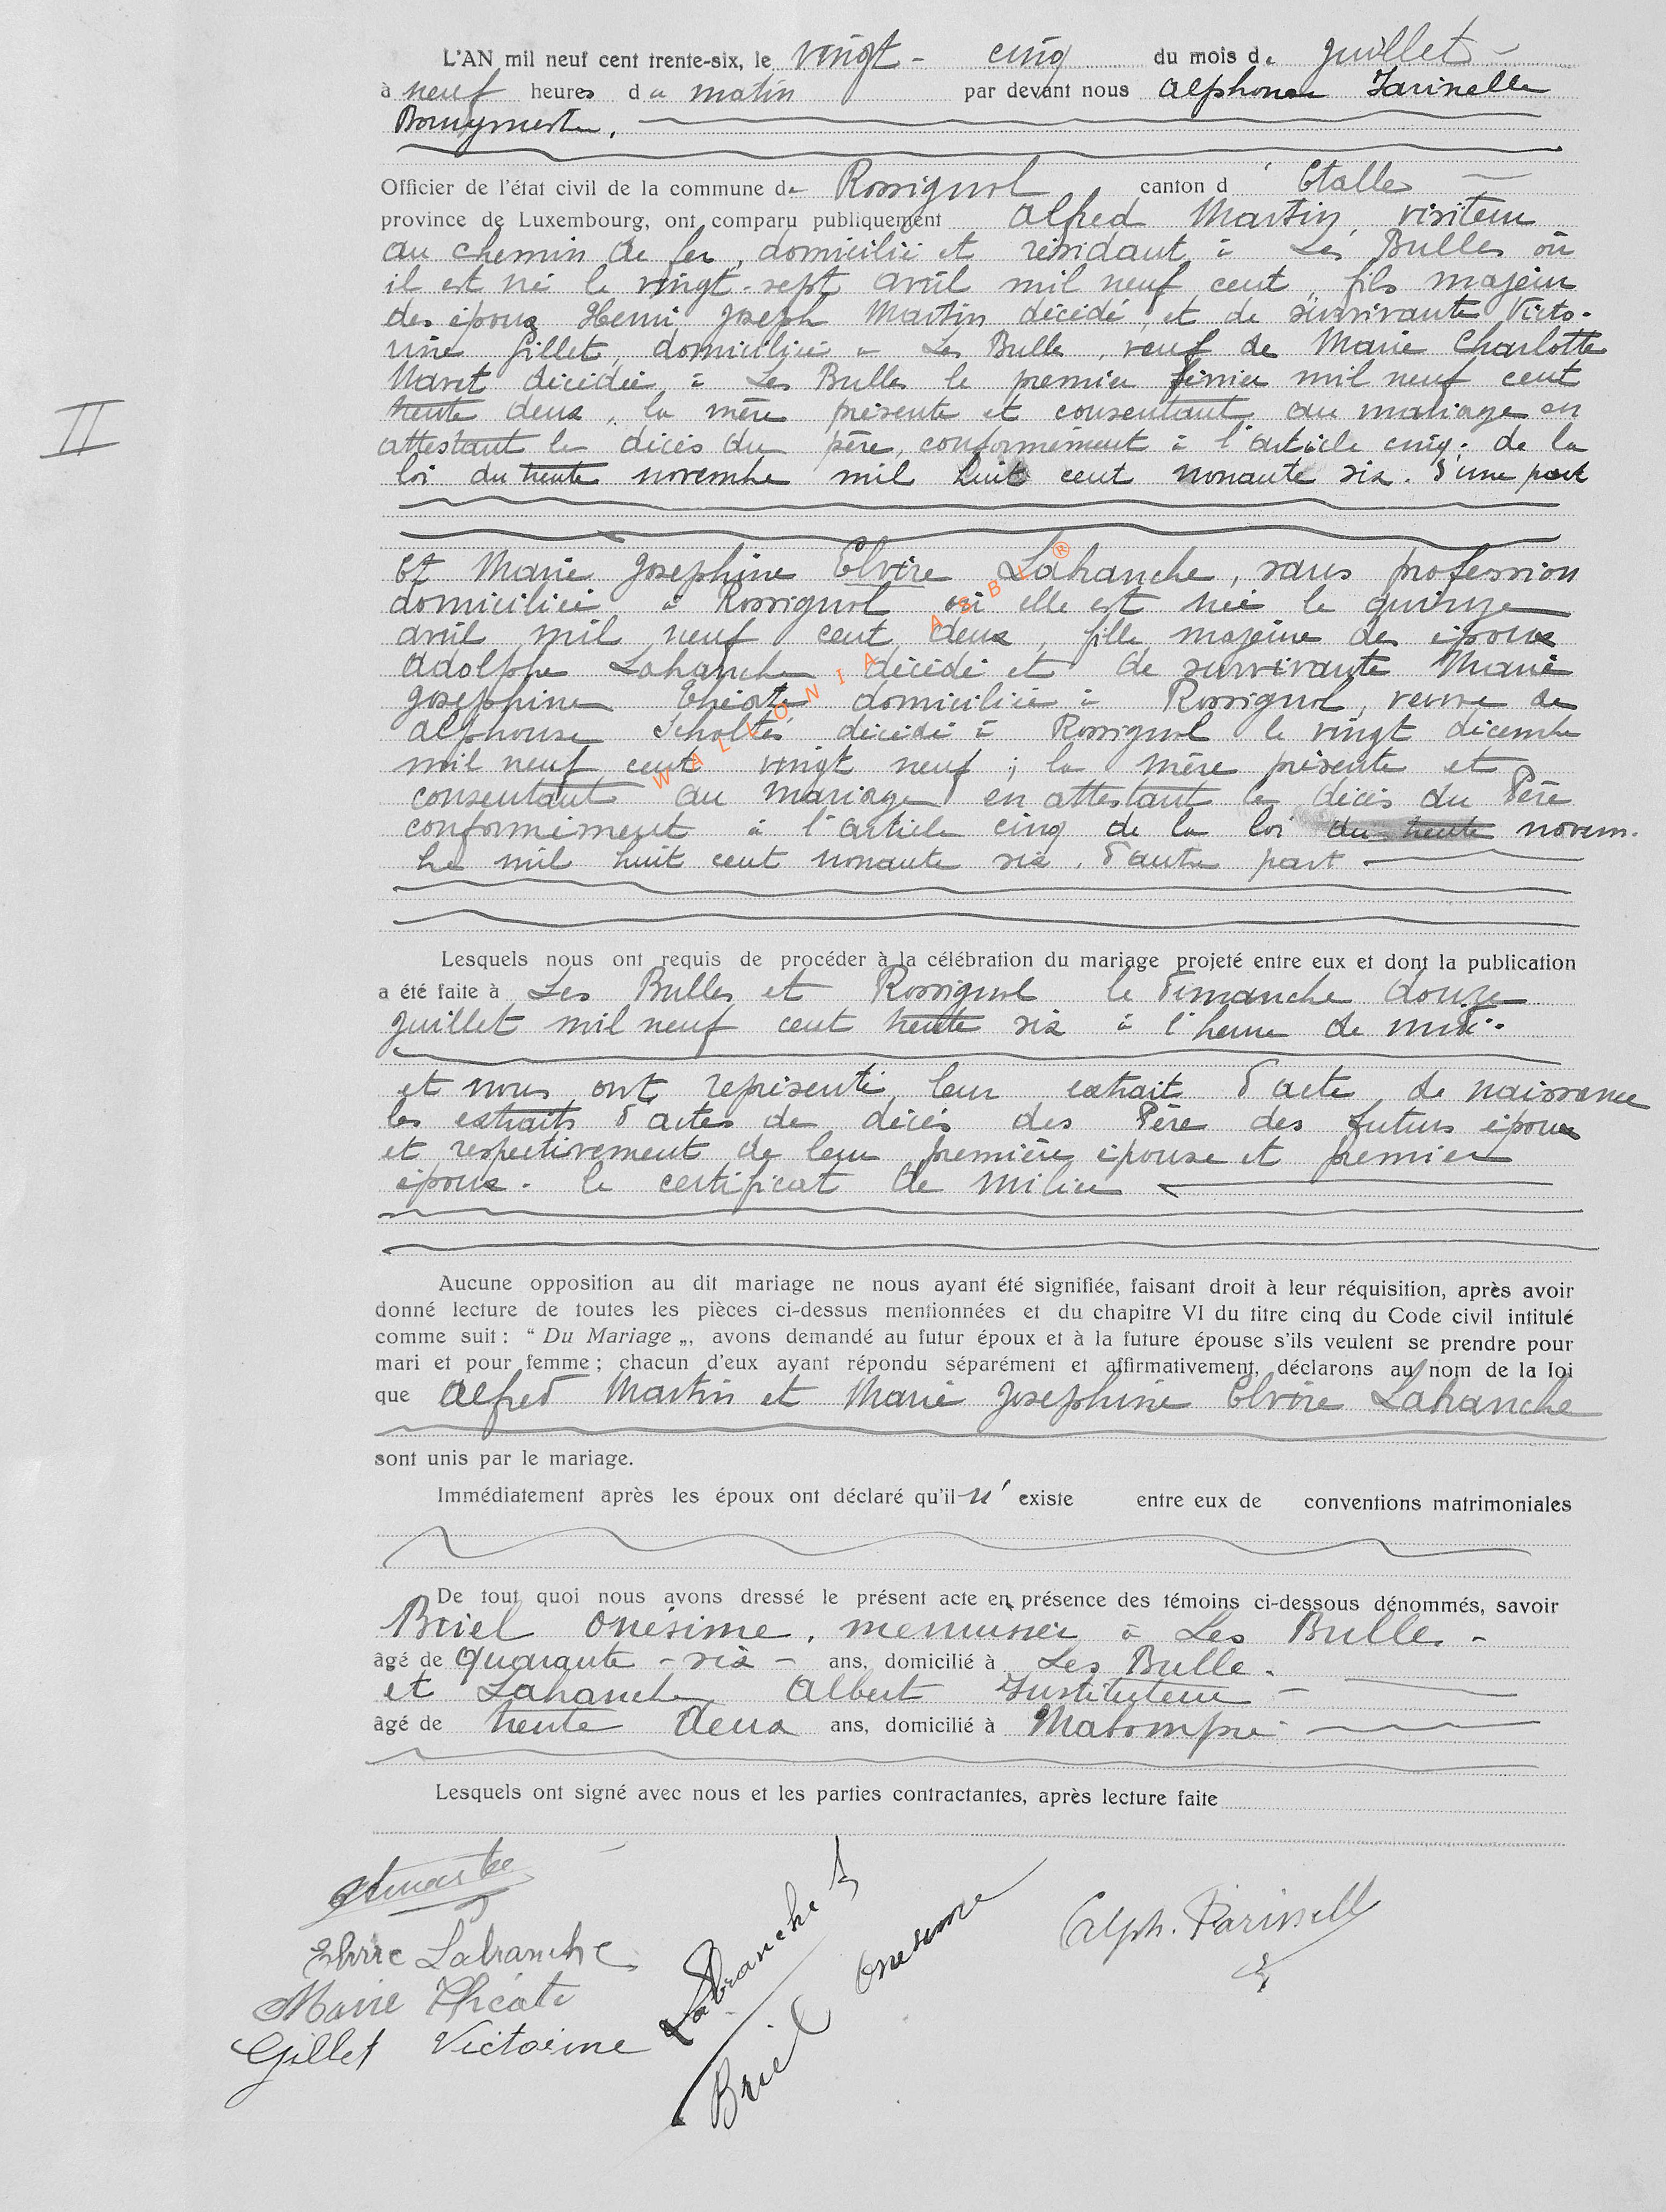 L'AN mil neuf cent trente-six, le vingt - cinq du mois de Juillet -
à neuf heures du matin par devant nous Alphonse Farinelle
Bourgmestre.
Officier de l'état civil de la commune de Rossignol canton d'Etalle
province de Luxembourg, ont comparu publiquement Alfred Martin, visiteur
au chemin de fer, domicilié et résidant à Les Bulles où
il est né le vingt-sept avril mil neuf cent, fils majeur
des époux Henri Joseph Martin décédé, et de survivante Victo-
rine Gillet, domiciliée à Les Bulles, veuf de Marie Charlotte
décédée à Les Bulles le premier février mil neuf cent
trente deux, la mère présente et consentant au mariage en
attestant le décès du père, conformément à l'article cinq de la
loi du trente novembre mil huit cent nonante six. d'une part
II
Et Marie Josephine Elvire Labranche, sans profession
domiciliée à Rossignol où elle est née le quinze
avril mil neuf cent deux, fille majeure des époux
Adolphe Labranche décédé et de survivante Marie
Josephine Théate domiciliée à Rossignol, veuve de
Alphonse Scholtès décédé à Rossignol le vingt décembre
mil neuf cent vingt neuf ; la mère présente et
consentant au mariage en attestant le décès du Père
conformément à l'article cinq de la loi du trente novem-
bre mil huit cent nonante six. d'autre part
WALLONIA ASBL ®
Lesquels nous ont requis de procéder à la célébration du mariage projeté entre eux et dont la publication
a été faite à Les Bulles et Rossignol le dimanche douze
Juillet mil neuf cent trente six à l'heure de midi.
et nous ont représenté leur extrait d'acte de naissance
les extraits d'actes de décès des Père des futurs époux
et respectivement de leur première épouse et premier
époux. le certificat de milice
Aucune opposition au dit mariage ne nous ayant été signifiée, faisant droit à leur réquisition, après avoir
donné lecture de toutes les pièces ci-dessus mentionnées et du chapitre VI du titre cinq du Code civil intitulé
comme suit : “ Du Mariage „, avons demandé au futur époux et à la future épouse s'ils veulent se prendre pour
mari et pour femme ; chacun d'eux ayant répondu séparément et affirmativement, déclarons au nom de la loi
que Alfred Martin et Marie Josephine Elvire Labranche
sont unis par le mariage.
Immédiatement après les époux ont déclaré qu'il n' existe entre eux de conventions matrimoniales
De tout quoi nous avons dressé le présent acte en présence des témoins ci-dessous dénommés, savoir
Briel Onésime, menuisier à Les Bulles -
âgé de quarante - six - ans, domicilié à Les Bulle.
et Labranche Albert Instituteur -
âgé de trente deux ans, domicilié à
Lesquels ont signé avec nous et les parties contractantes, après lecture faite
Elvire Labranche
Marie Théate
Gillet Victorine
Labranche
Briel Onésime
Alph. Farinelle